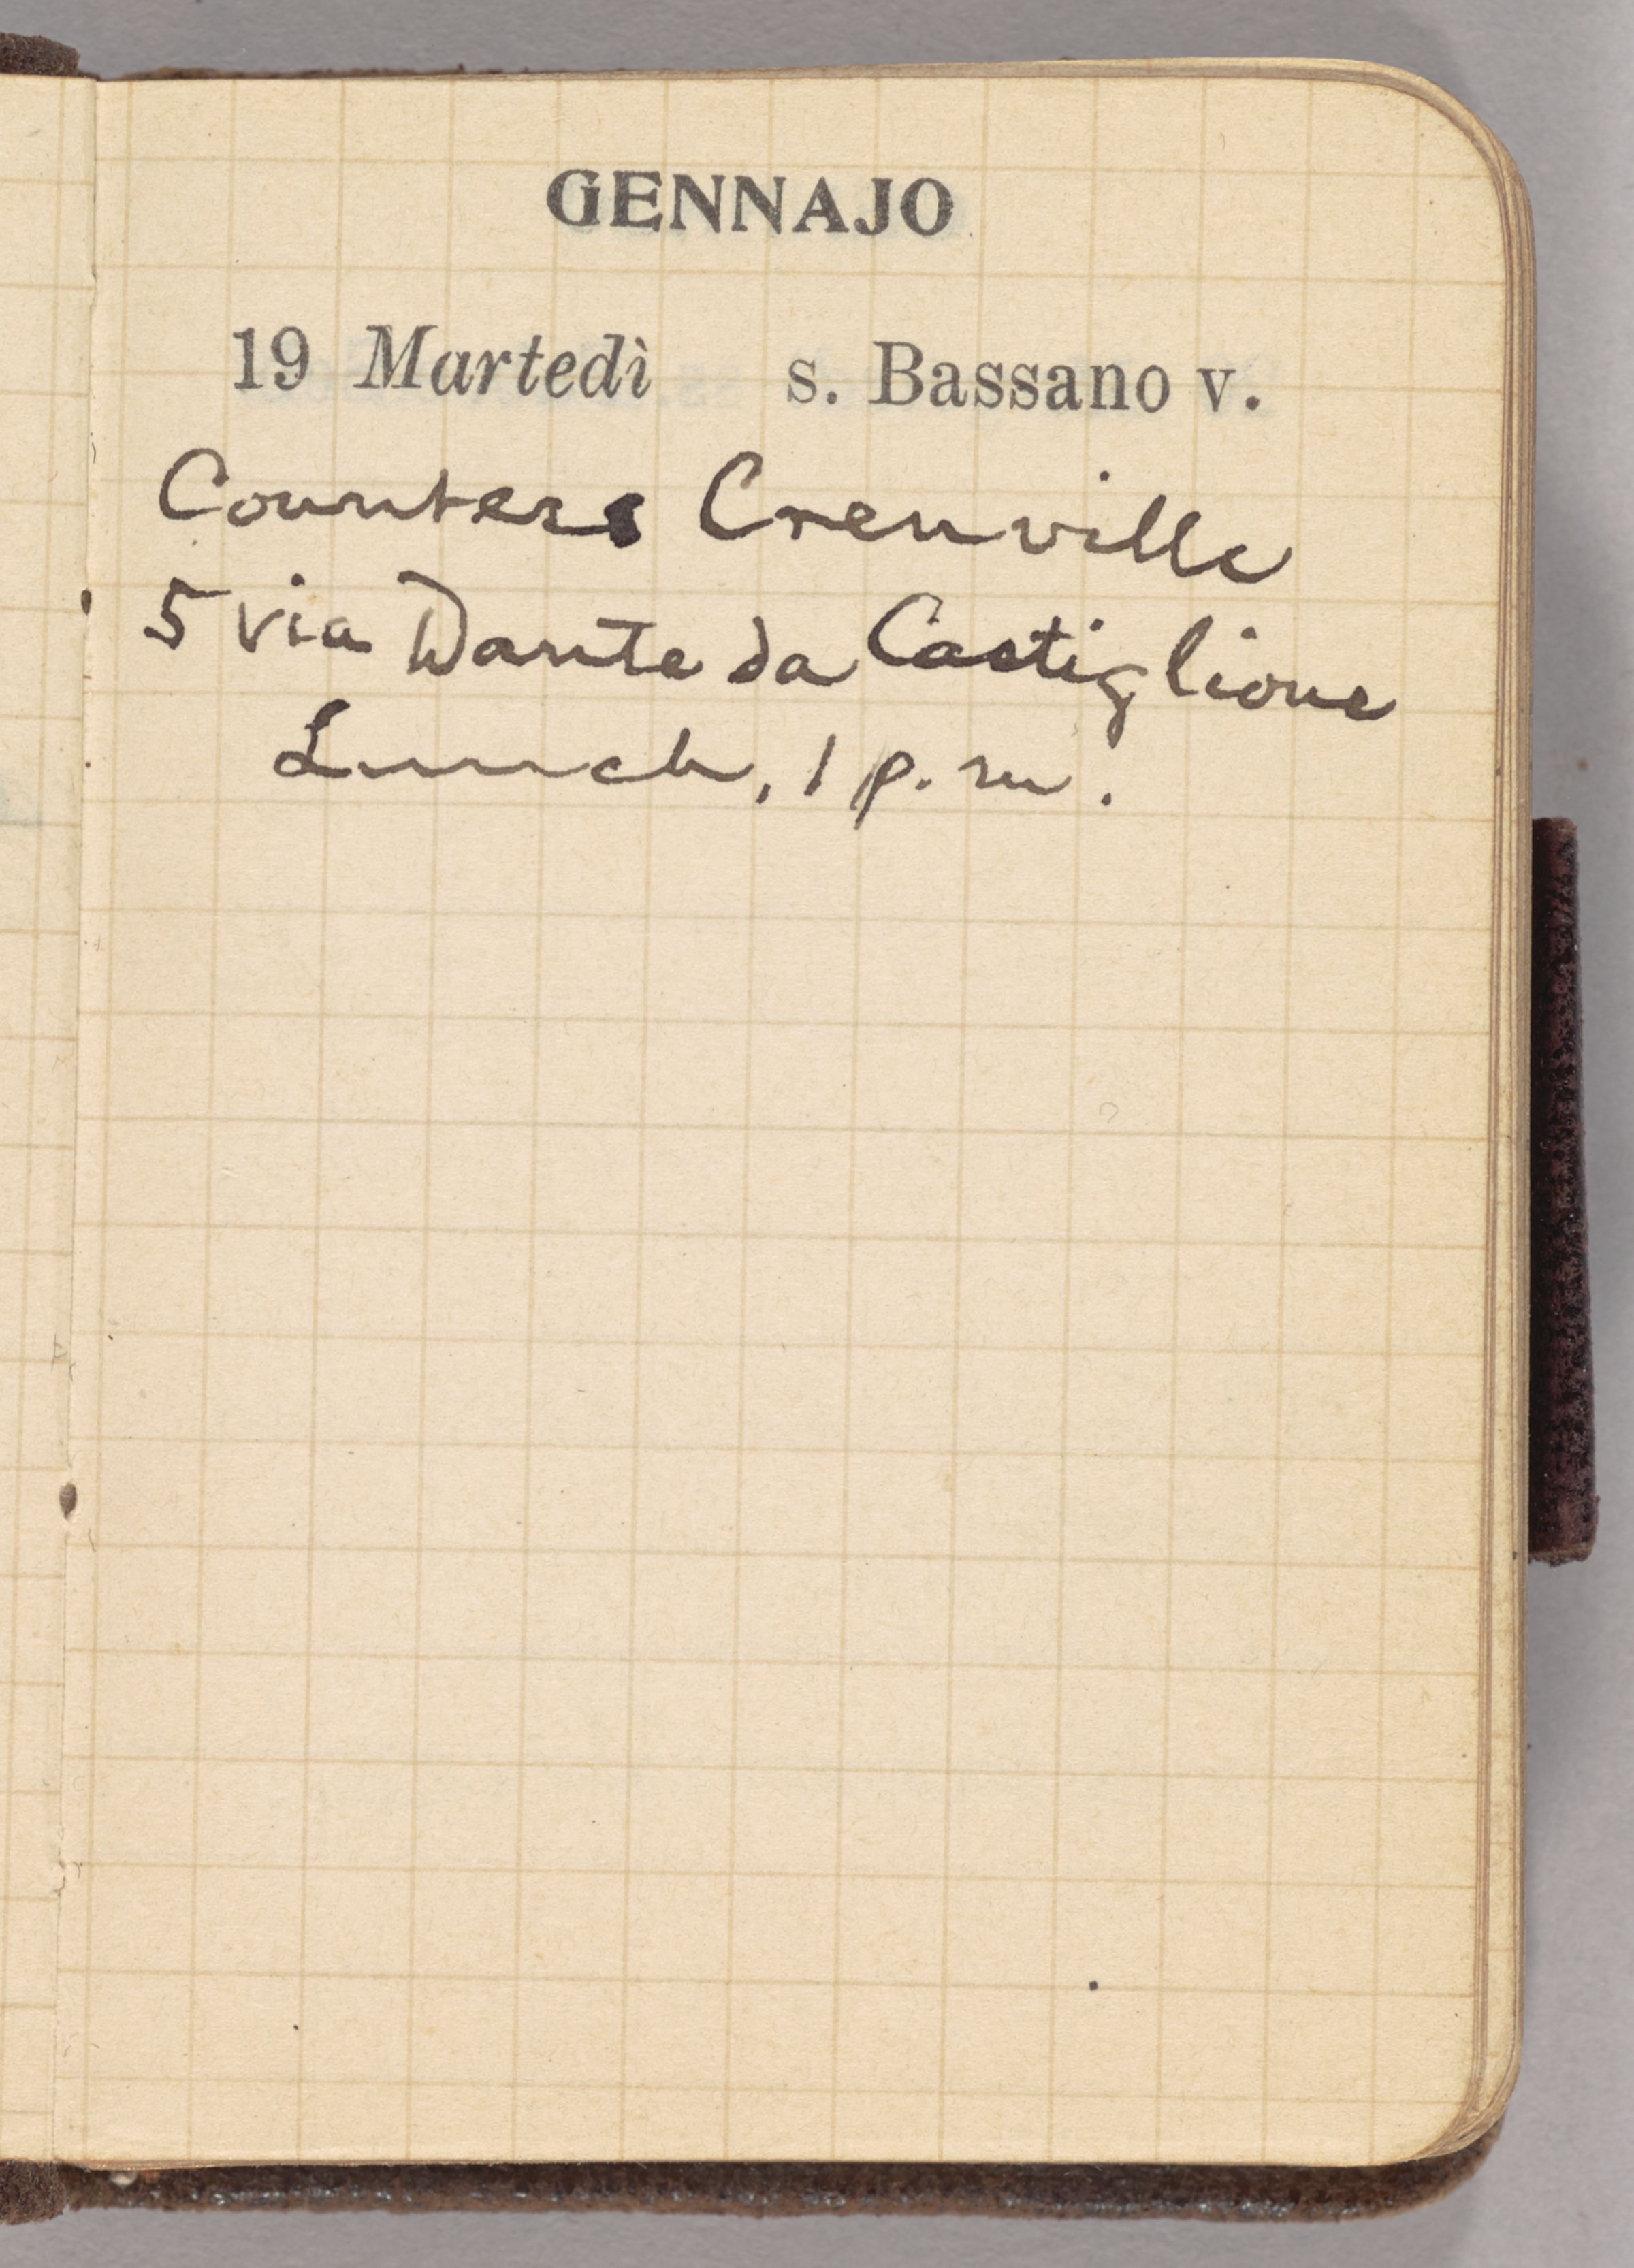 GENNAJO
19 Martedì s. Bassano v.
Countess Crenville
5 via Dante da Castiglione
Lunch, 1 p.m.